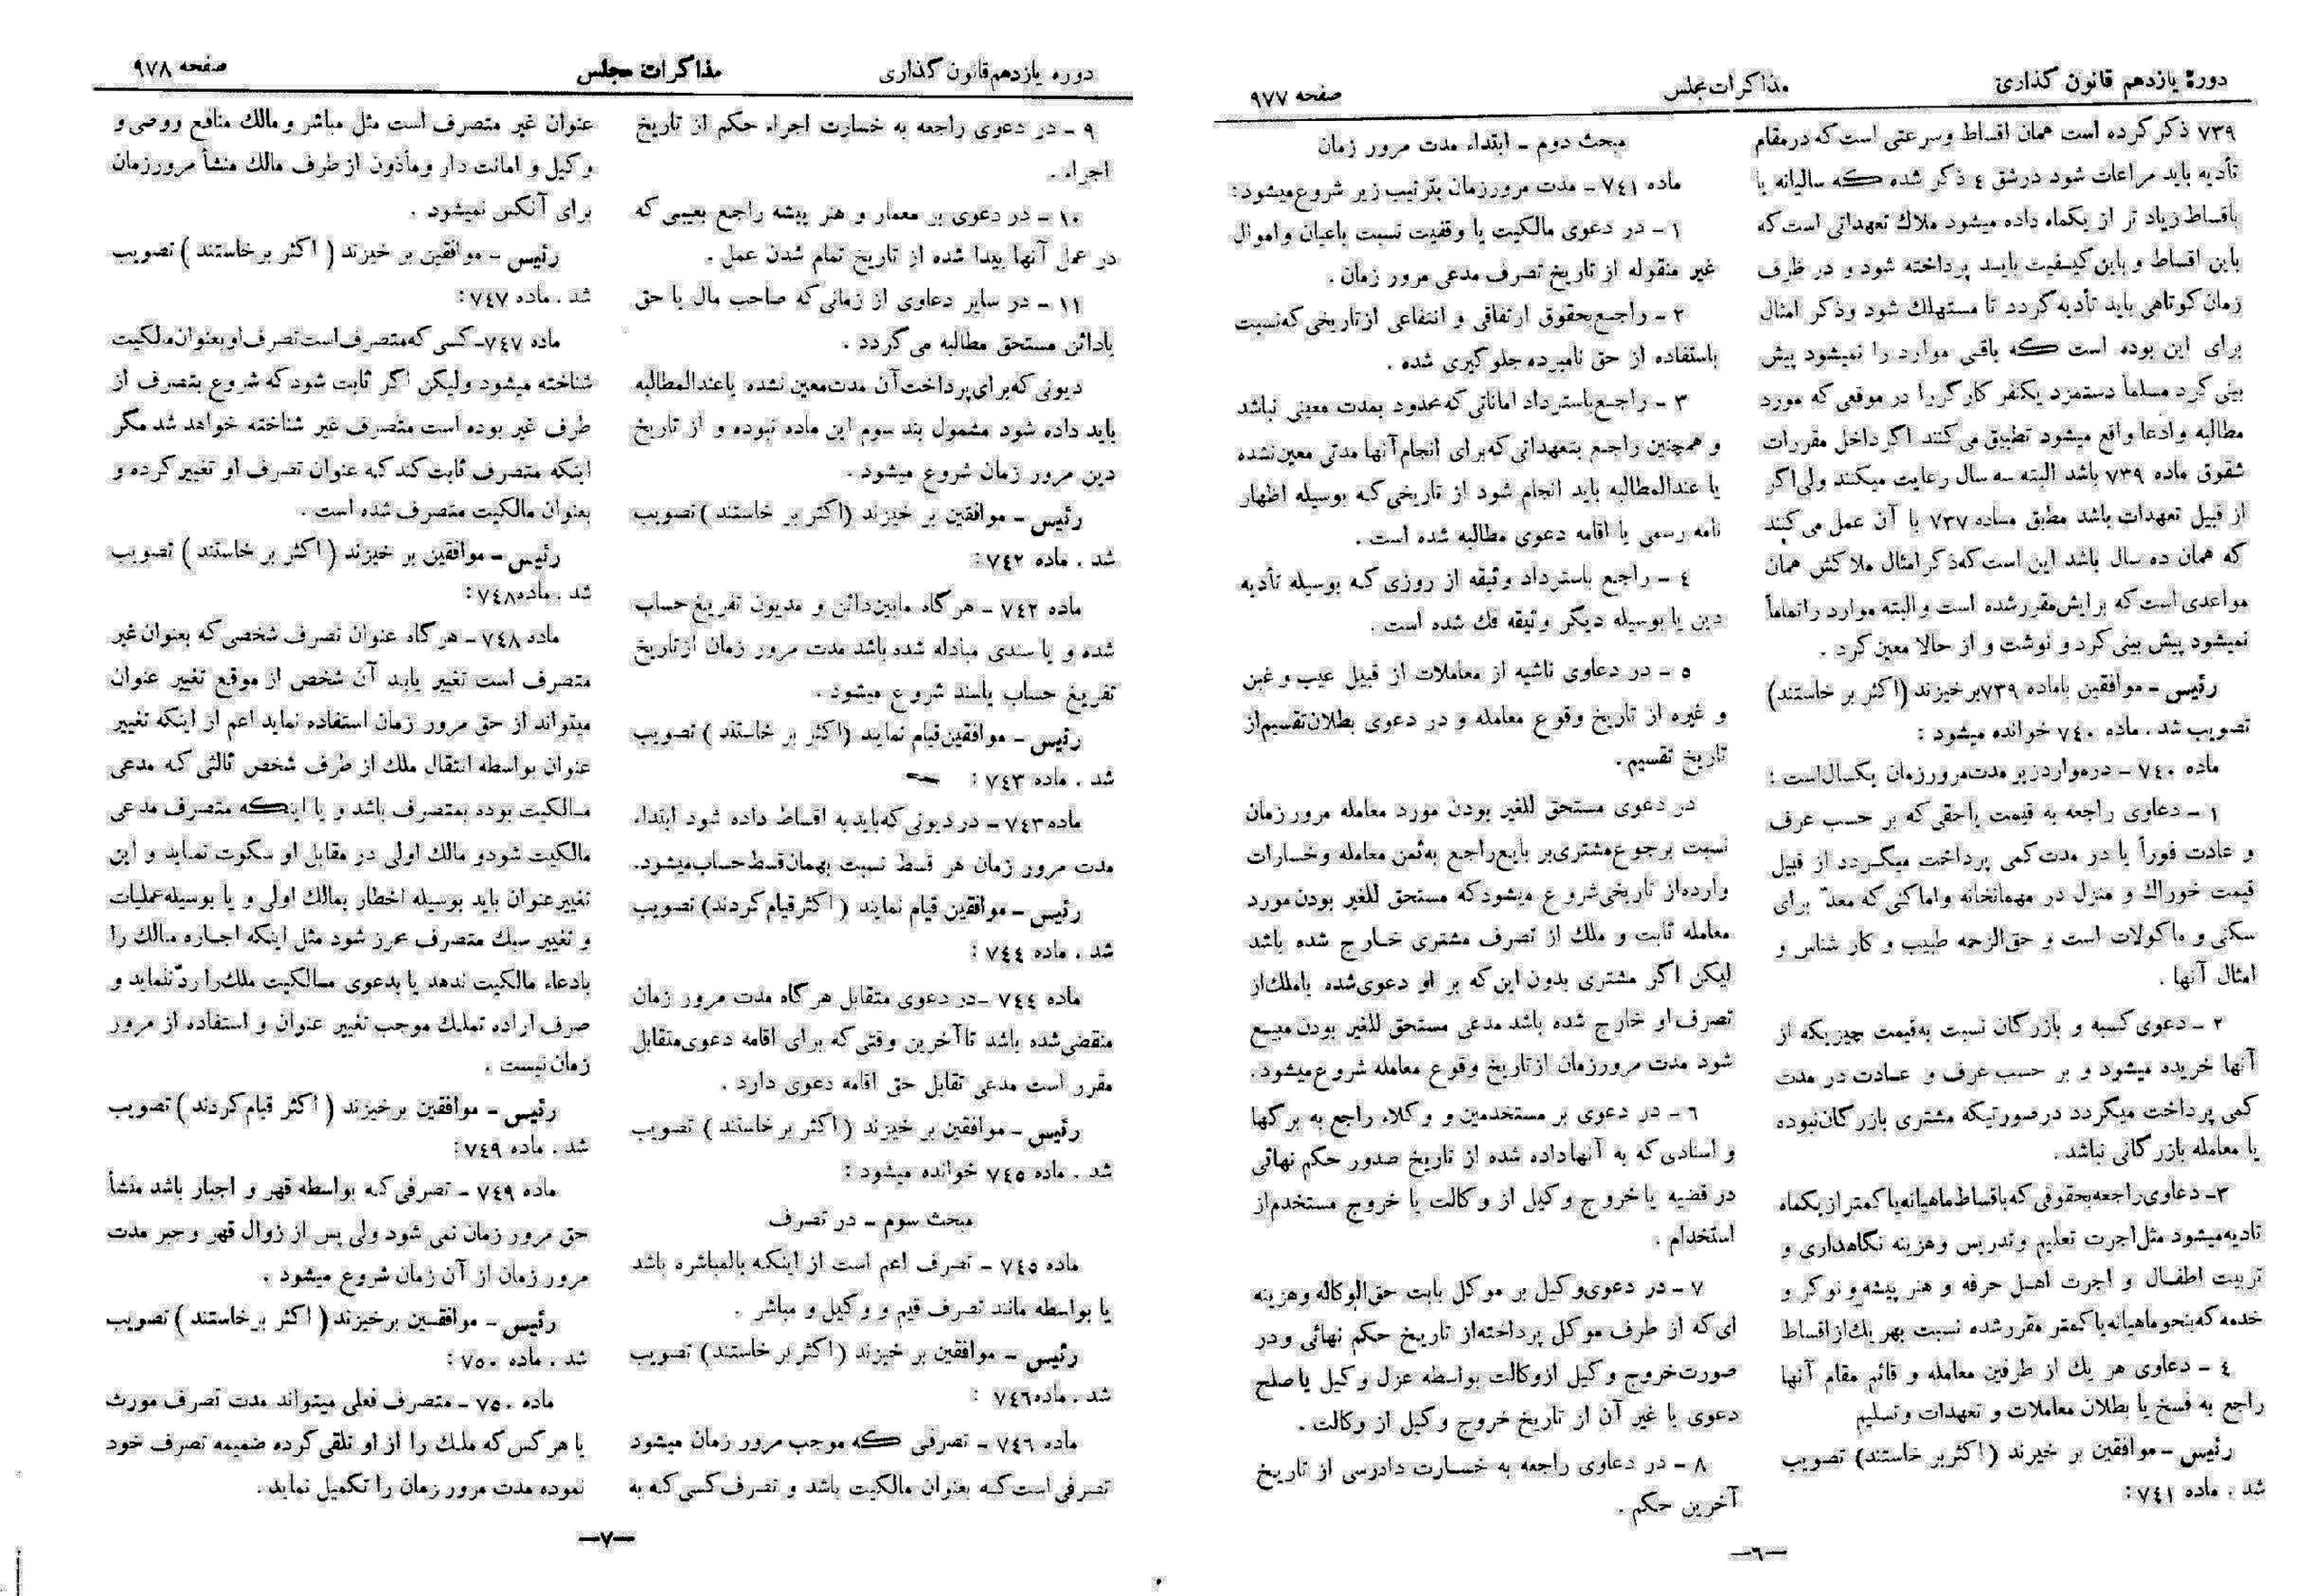 دوره یازدهم قانون گذاری
مذاکرات مجلس
صفحه ۹۷۷
۷۳۹ ذکر کرده است همان اقساط و سرعتی است که در مقام
تأدیه باید مراعات شود در شق ٤ ذکر شده که سالیانه یا
باقساط زیاد تر از یکماه داده میشود ملاك تعهداتی است که
باین اقساط و باین کیفیت باید پرداخته شود و در ظرف
زمان کوتاهی باید تأدیه گردد تا مستهلك شود و ذکر امثال
برای این بوده است که باقی موارد را نمیشود پیش
بینی کرد مسلماً دستمزد یکنفر کارگر را در موقعی که مورد
مطالبه و ادعا واقع میشود تطبیق می کنند اگر داخل مقررات
شقوق ماده ۷۳۹ باشد البته سه سال رعایت میکنند ولی اگر
از قبیل تعهدات باشد مطابق ماده ۷۳۷ با آن عمل می کنند
که همان ده سال باشد این است که ذکر امثال ملاکش همان
مواعدی است که برایش مقرر شده است و البته موارد را تماماً
نمیشود پیش بینی کرد و نوشت و از حالا معین کرد .
رئیس - موافقین باماده ۷۳۹ بر خیزند (اکثر بر خاستند)
تصویب شد . ماده ۷٤۰ خوانده میشود :
ماده ۷٤۰ - در موارد زیر مدت مرور زمان یکسال است :
۱ - دعاوی راجعه به قیمت یا حقی که بر حسب عرف
و عادت فوراً یا در مدت کمی پرداخت میگردد از قبیل
قیمت خوراك و منزل در مهمانخانه و اماکنی که معدّ برای
سکنی و ماکولات است و حق الزحمه طبیب و کار شناس و
امثال آنها .
۲ - دعوی کسبه و بازرگان نسبت به قیمت چیزیکه از
آنها خریده میشود و بر حسب عرف و عادت در مدت
کمی پرداخت میگردد در صورتیکه مشتری بازرگان نبوده
یا معامله بازرگانی نباشد .
۳ - دعاوی راجعه بحقوقی که باقساط ماهیانه یا کمتر از یکماه
تادیه میشود مثل اجرت تعلیم و تدریس و هزینه نگاهداری و
تربیت اطفال و اجرت اهل حرفه و هنر پیشه و نوکر و
خدمه که بنحو ماهیانه یا کمتر مقرر شده نسبت بهر یك از اقساط
٤ - دعاوی هر یك از طرفین معامله و قائم مقام آنها
راجع به فسخ یا بطلان معاملات و تعهدات و تسلیم
رئیس - موافقین بر خیزند (اکثر بر خاستند) تصویب
شد . ماده ۷٤۱ :
مبحث دوم - ابتداء مدت مرور زمان
ماده ۷٤۱ - مدت مرور زمان بترتیب زیر شروع میشود :
۱ - در دعوی مالکیت یا وقفیت نسبت باعیان و اموال
غیر منقوله از تاریخ تصرف مدعی مرور زمان .
۲ - راجع بحقوق ارتفاقی و انتفاعی از تاریخی که نسبت
باستفاده از حق نامبرده جلوگیری شده .
۳ - راجع باسترداد اماناتی که محدود بمدت معینی نباشد
و همچنین راجع بتعهداتی که برای انجام آنها مدتی معین نشده
یا عندالمطالبه باید انجام شود از تاریخی که بوسیله اظهار
نامه رسمی یا اقامه دعوی مطالبه شده است .
٤ - راجع باسترداد وثیقه از روزی که بوسیله تأدیه
دین یا بوسیله دیگر وثیقه فك شده است .
٥ - در دعاوی ناشیه از معاملات از قبیل عیب و غبن
و غیره از تاریخ وقوع معامله و در دعوی بطلان تقسیم از
تاریخ تقسیم .
در دعوی مستحق للغیر بودن مورد معامله مرور زمان
نسبت برجوع مشتری بر بایع راجع به ثمن معامله و خسارات
وارده از تاریخی شروع میشود که مستحق للغیر بودن مورد
معامله ثابت و ملك از تصرف مشتری خارج شده باشد
لیکن اگر مشتری بدون این که بر او دعوی شده یا ملك از
تصرف او خارج شده باشد مدعی مستحق للغیر بودن مبیع
شود مدت مرور زمان از تاریخ وقوع معامله شروع میشود .
٦ - در دعوی بر مستخدمین و وکلاء راجع به برگها
و اسنادی که به آنها داده شده از تاریخ صدور حکم نهائی
در قضیه یا خروج وکیل از وکالت یا خروج مستخدم از
استخدام .
۷ - در دعوی وکیل بر موکل بابت حق الوکاله و هزینه
ای که از طرف موکل پرداخته از تاریخ حکم نهائی و در
صورت خروج وکیل از وکالت بواسطه عزل وکیل یا صلح
دعوی یا غیر آن از تاریخ خروج وکیل از وکالت .
۸ - در دعاوی راجعه به خسارت دادرسی از تاریخ
آخرین حکم .
-٦-
دوره یازدهم قانون گذاری
مذاکرات مجلس
صفحه ۹۷۸
۹ - در دعوی راجعه به خسارت اجراء حکم از تاریخ
اجراء .
۱۰ - در دعوی بر معمار و هنر پیشه راجع بعیبی که
در عمل آنها پیدا شده از تاریخ تمام شدن عمل .
۱۱ - در سایر دعاوی از زمانی که صاحب مال یا حق
یا دائن مستحق مطالبه می گردد .
دیونی که برای پرداخت آن مدت معین نشده یا عندالمطالبه
باید داده شود مشمول بند سوم این ماده نبوده و از تاریخ
دین مرور زمان شروع میشود .
رئیس - موافقین بر خیزند (اکثر بر خاستند) تصویب
شد . ماده ۷٤۲ :
ماده ۷٤۲ - هر گاه مابین دائن و مدیون تفریغ حساب
شده و یا سندی مبادله شده باشد مدت مرور زمان از تاریخ
تفریغ حساب یا سند شروع میشود .
رئیس - موافقین قیام نمایند (اکثر بر خاستند) تصویب
شد . ماده ۷٤۳ :
ماده ۷٤۳ - در دیونی که باید به اقساط داده شود ابتداء
مدت مرور زمان هر قسط نسبت بهمان قسط حساب میشود .
رئیس - موافقین قیام نمایند (اکثر قیام کردند) تصویب
شد . ماده ۷٤٤ :
ماده ۷٤٤ - در دعوی متقابل هر گاه مدت مرور زمان
منقضی شده باشد تا آخرین وقتی که برای اقامه دعوی متقابل
مقرر است مدعی تقابل حق اقامه دعوی دارد .
رئیس - موافقین بر خیزند (اکثر بر خاستند) تصویب
شد . ماده ۷٤٥ خوانده میشود :
مبحث سوم - در تصرف
ماده ۷٤٥ - تصرف اعم است از اینکه بالمباشره باشد
یا بواسطه مانند تصرف قیم و وکیل و مباشر .
رئیس - موافقین بر خیزند (اکثر بر خاستند) تصویب
شد . ماده ۷٤٦ :
ماده ۷٤٦ - تصرفی که موجب مرور زمان میشود
تصرفی است که بعنوان مالکیت باشد و تصرف کسی که به
عنوان غیر متصرف است مثل مباشر و مالك منافع و وصی و
وکیل و امانت دار و مأذون از طرف مالك منشأ مرور زمان
برای آنکس نمیشود .
رئیس - موافقین بر خیزند (اکثر بر خاستند) تصویب
شد . ماده ۷٤۷ :
ماده ۷٤۷ - کسی که متصرف است تصرف او بعنوان مالکیت
شناخته میشود ولیکن اگر ثابت شود که شروع بتصرف از
طرف غیر بوده است متصرف غیر شناخته خواهد شد مگر
اینکه متصرف ثابت کند که عنوان تصرف او تغییر کرده و
بعنوان مالکیت متصرف شده است .
رئیس - موافقین بر خیزند (اکثر بر خاستند) تصویب
شد . ماده ۷٤۸ :
ماده ۷٤۸ - هر گاه عنوان تصرف شخصی که بعنوان غیر
متصرف است تغییر یابد آن شخص از موقع تغییر عنوان
میتواند از حق مرور زمان استفاده نماید اعم از اینکه تغییر
عنوان بواسطه انتقال ملك از طرف شخص ثالثی که مدعی
مالکیت بوده بمتصرف باشد و یا اینکه متصرف مدعی
مالکیت شود و مالك اولی در مقابل او سکوت نماید و این
تغییر عنوان باید بوسیله اخطار بمالك اولی و یا بوسیله عملیات
و تغییر سبك متصرف محرز شود مثل اینکه اجاره مالك را
بادعاء مالکیت ندهد یا بدعوی مالکیت ملك را ردّ ننماید و
صرف اراده تملك موجب تغییر عنوان و استفاده از مرور
زمان نیست .
رئیس - موافقین بر خیزند (اکثر قیام کردند) تصویب
شد . ماده ۷٤۹ :
ماده ۷٤۹ - تصرفی که بواسطه قهر و اجبار باشد منشأ
حق مرور زمان نمی شود ولی پس از زوال قهر و جبر مدت
مرور زمان از آن زمان شروع میشود .
رئیس - موافقین بر خیزند (اکثر بر خاستند) تصویب
شد . ماده ۷٥۰ :
ماده ۷٥۰ - متصرف فعلی میتواند مدت تصرف مورث
یا هر کس که ملك را از او تلقی کرده ضمیمه تصرف خود
نموده مدت مرور زمان را تکمیل نماید .
-۷-